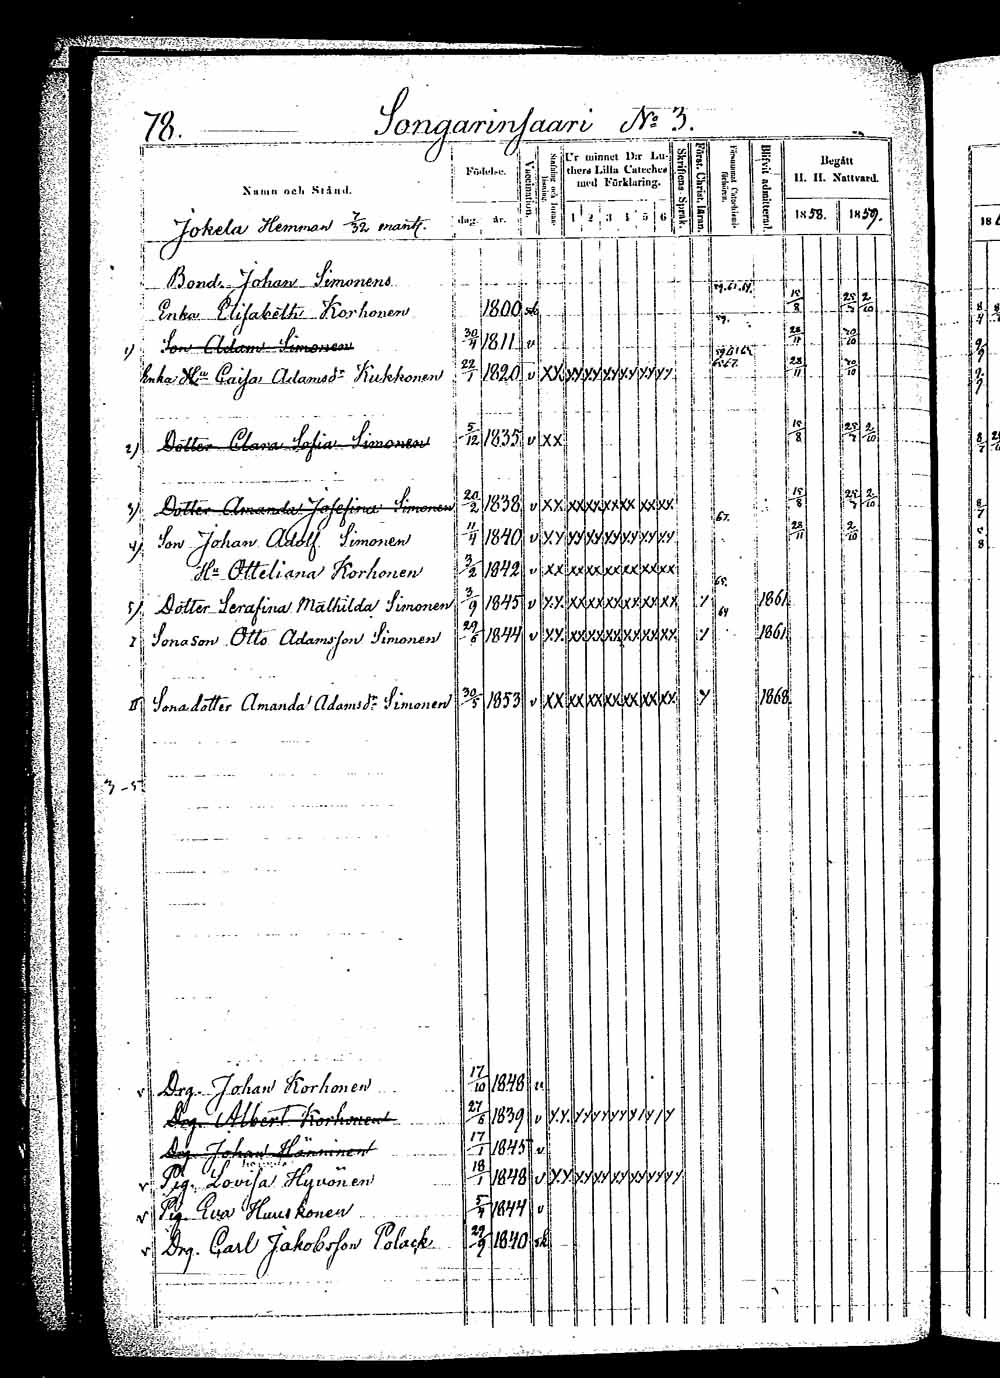 78. Songarinsaari No 3.
Namn och Stånd.
Födelse.
dag. år.
Vaccination.
Ur minnet D:r Luthers Lilla Cateches med Förklaring.
1 2 3 4 5 6
Skriftens Språk.
Först. Christ. läran.
Blifvit admitterad.
Begått H. H. Nattvard.
1858. 1859.
Jokela Hemman 7/32 mantl.
Bond. Johan Simonens
Enka Elisabeth Korhonen 1800 15/8 25/7 2/10
1) Son Adam Simonen 30/4 1811 v 28/11
Enka Hu Caisa Adamsdr Kukkonen 22/1 1820 v XX 28/11
2) Dotter Clara Sofia Simonen 5/12 1835 v XX 15/8 25/7 2/10
3) Dotter Amanda Josefina Simonen 20/2 1838 v XX XX XX XX XX XX XX 15/8 25/7 2/10
4) Son Johan Adolf Simonen 11/4 1840 v 67. 28/11 2/10
Hu Otteliana Korhonen 3/2 1842 v XX XX XX XX XX XX XX
5) Dotter Serafina Mathilda Simonen 3/9 1845 v 65. 1861
I Sonason Otto Adamsson Simonen 29/6 1844 v 64 1861
II Sonadotter Amanda Adamsdr Simonen 30/5 1853 v XX XX XX XX XX XX XX 1868
3-5
v Drg. Johan Korhonen 17/10 1848
Drg. Albert Korhonen 27/6 1839 v
Drg. Johan Hänninen 17/1 1845 v
v Pig. Lovisa Hyvönen 18/1 1848 v
v Pig Eva Huuskonen 1844 v
v Drg. Carl Jakobsson Polack 29/9 1840